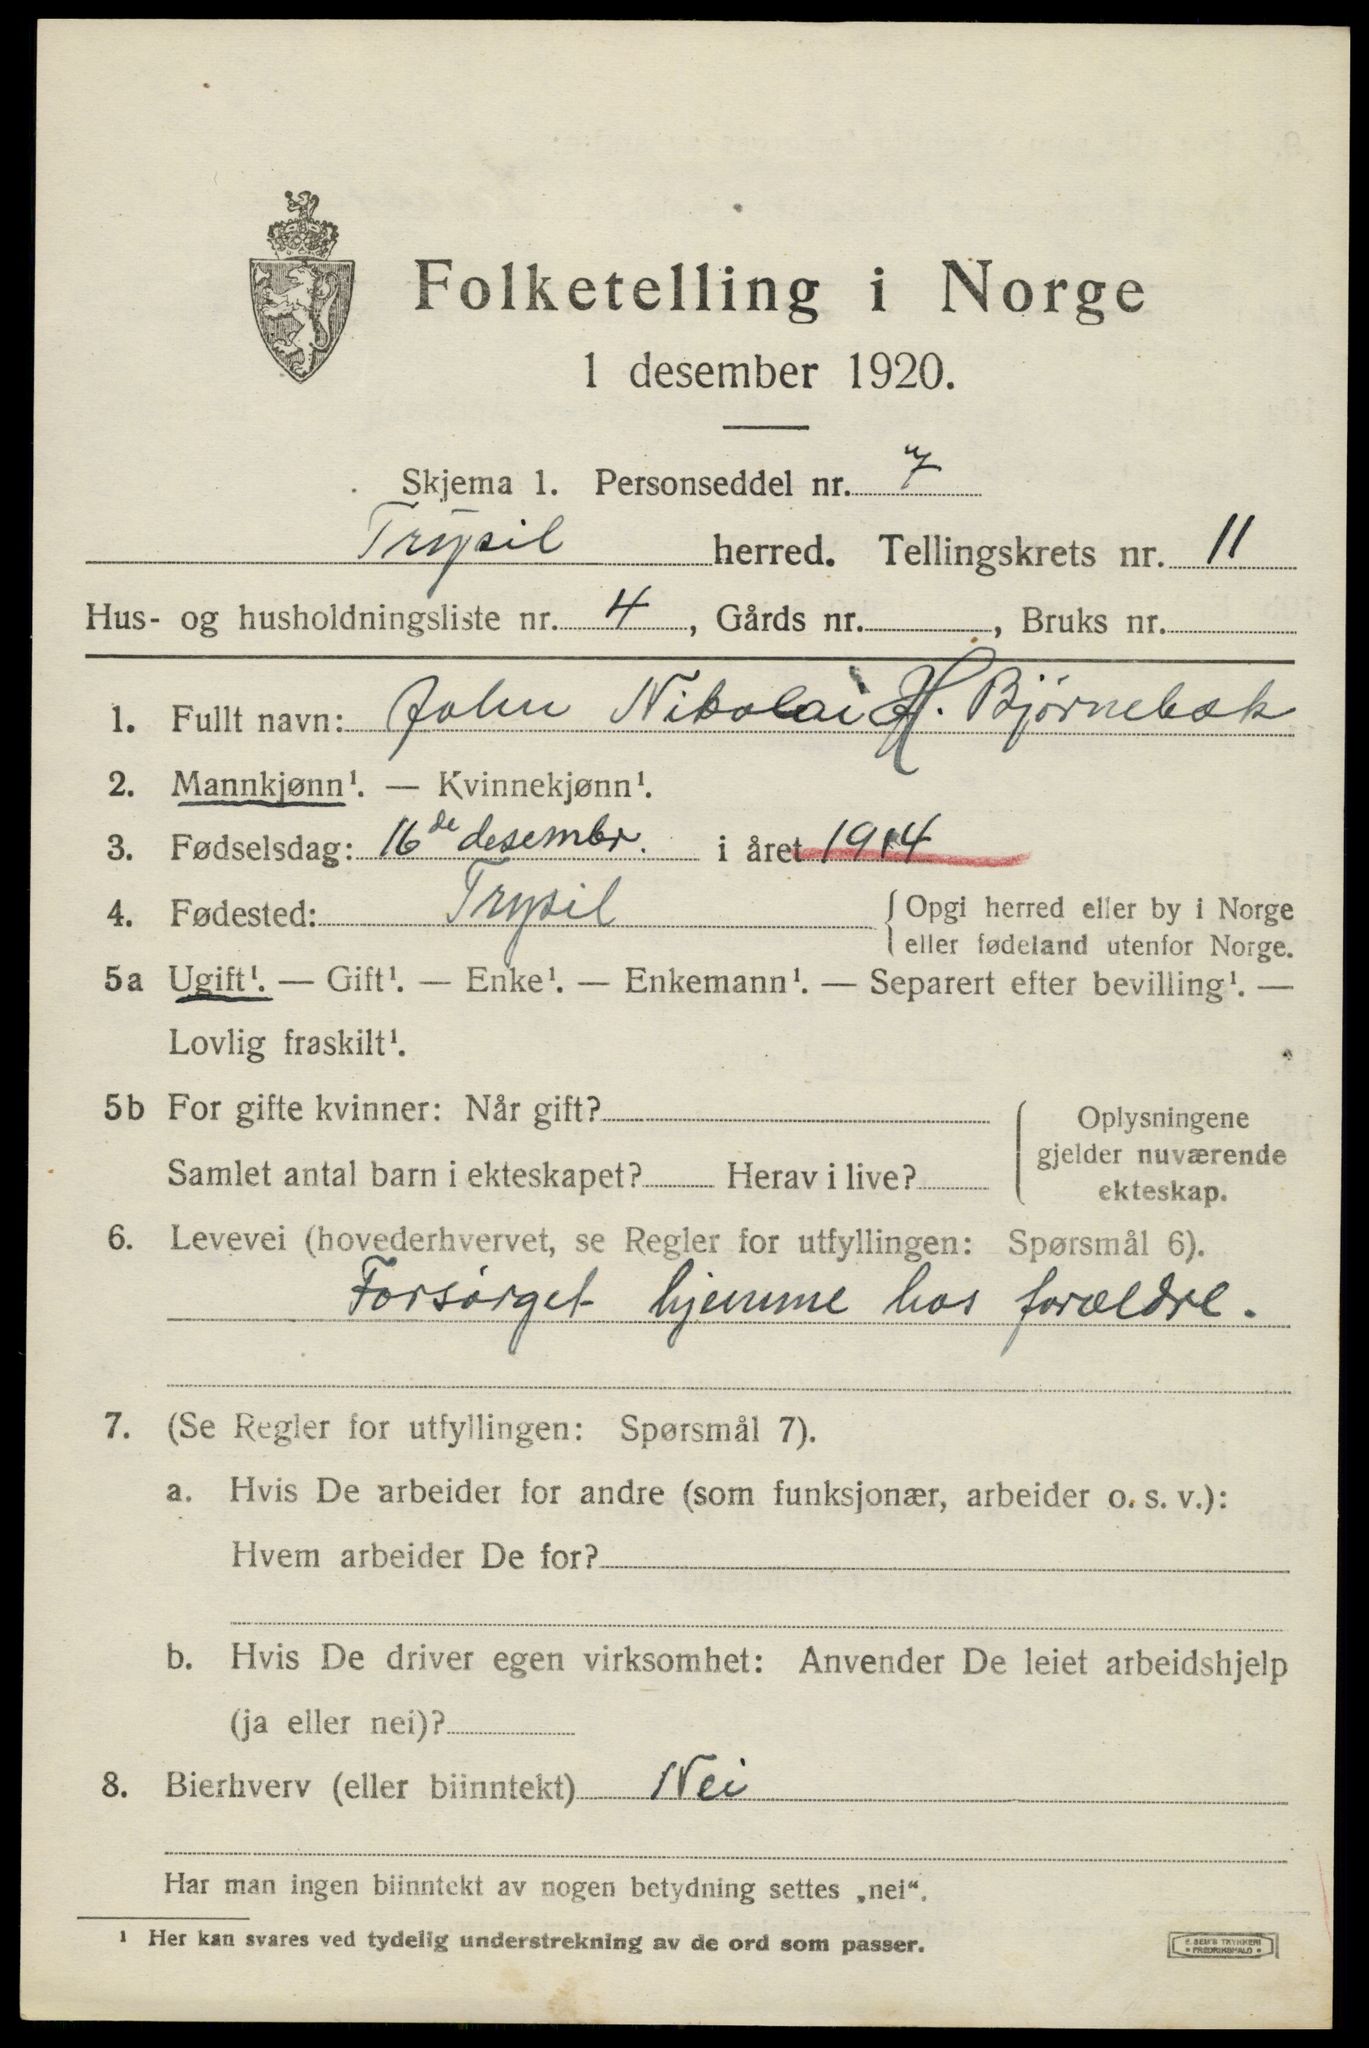 Folketelling i Norge
1 desember 1920.
Skjema 1. Personseddel nr. 7
Trysil herred. Tellingskrets nr. 11
Hus- og husholdningsliste nr. 4, Gårds nr. , Bruks nr.
1. Fullt navn: John Nikolai H. Bjørnebæk
2. Mannkjønn¹. — Kvinnekjønn¹.
3. Fødselsdag: 16de desembr. i året 1914
4. Fødested: Trysil { Opgi herred eller by i Norge
eller fødeland utenfor Norge.
5a Ugift¹. — Gift¹. — Enke¹. — Enkemann¹. — Separert efter bevilling¹. —
Lovlig fraskilt¹.
5b For gifte kvinner: Når gift? Oplysningene
gjelder nuværende
Samlet antal barn i ekteskapet? Herav i live? ekteskap.
6. Levevei (hovederhvervet, se Regler for utfyllingen: Spørsmål 6).
Forsørget hjemme hos forældre.
7. (Se Regler for utfyllingen: Spørsmål 7).
a. Hvis De arbeider for andre (som funksjonær, arbeider o. s. v.):
Hvem arbeider De for?
b. Hvis De driver egen virksomhet: Anvender De leiet arbeidshjelp
(ja eller nei)?
8. Bierhverv (eller biinntekt) Nei
Har man ingen biinntekt av nogen betydning settes „nei“.
¹ Her kan svares ved tydelig understrekning av de ord som passer.
E. SEM'S TRYKKERI
FREDRIKSHALD